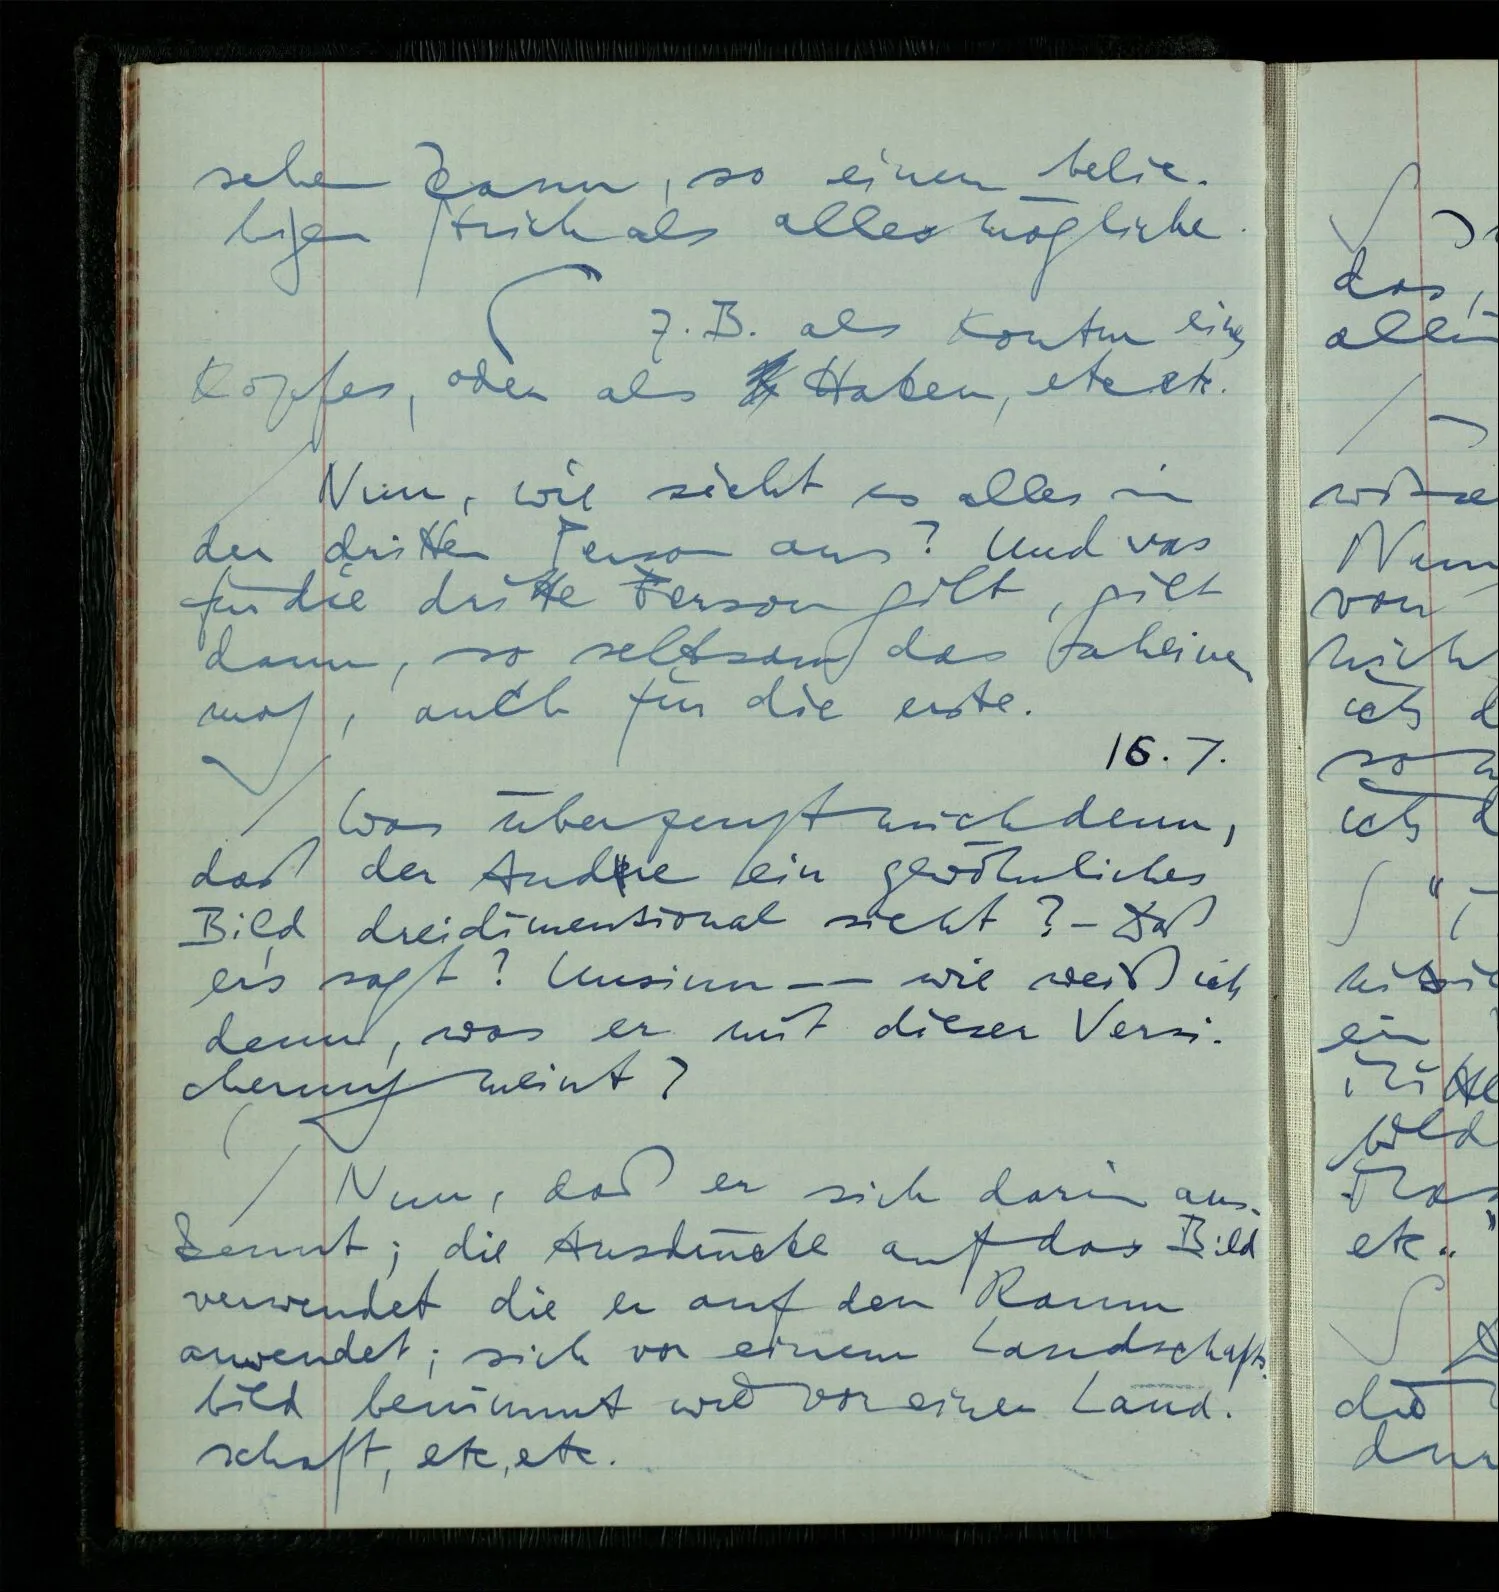 sehen kann, so einen belie-
bigen Strich als alles mögliche.
z.B. als Kontur eines
Kopfes, oder als Haken, etc etc.
Nun, wie sieht es alles in
der dritten Person aus? Und was
für die dritte Person gilt, gilt
dann, so seltsam das scheinen
mag, auch für die erste.
16.7.
Was überzeugt mich denn,
daß der Andre ein gewöhnliches
Bild dreidimensional sieht? – Daß
er's sagt? Unsinn –– wie weiß ich
denn, was er mit dieser Versi-
cherung meint?
Nun, daß er sich darin aus-
kennt; die Ausdrücke auf das Bild
verwendet die er auf den Raum
anwendet; sich vor einem Landschafts-
bild benimmt wie vor einer Land-
schaft, etc, etc.
das,
von
ich d
ich d
ein
etc."